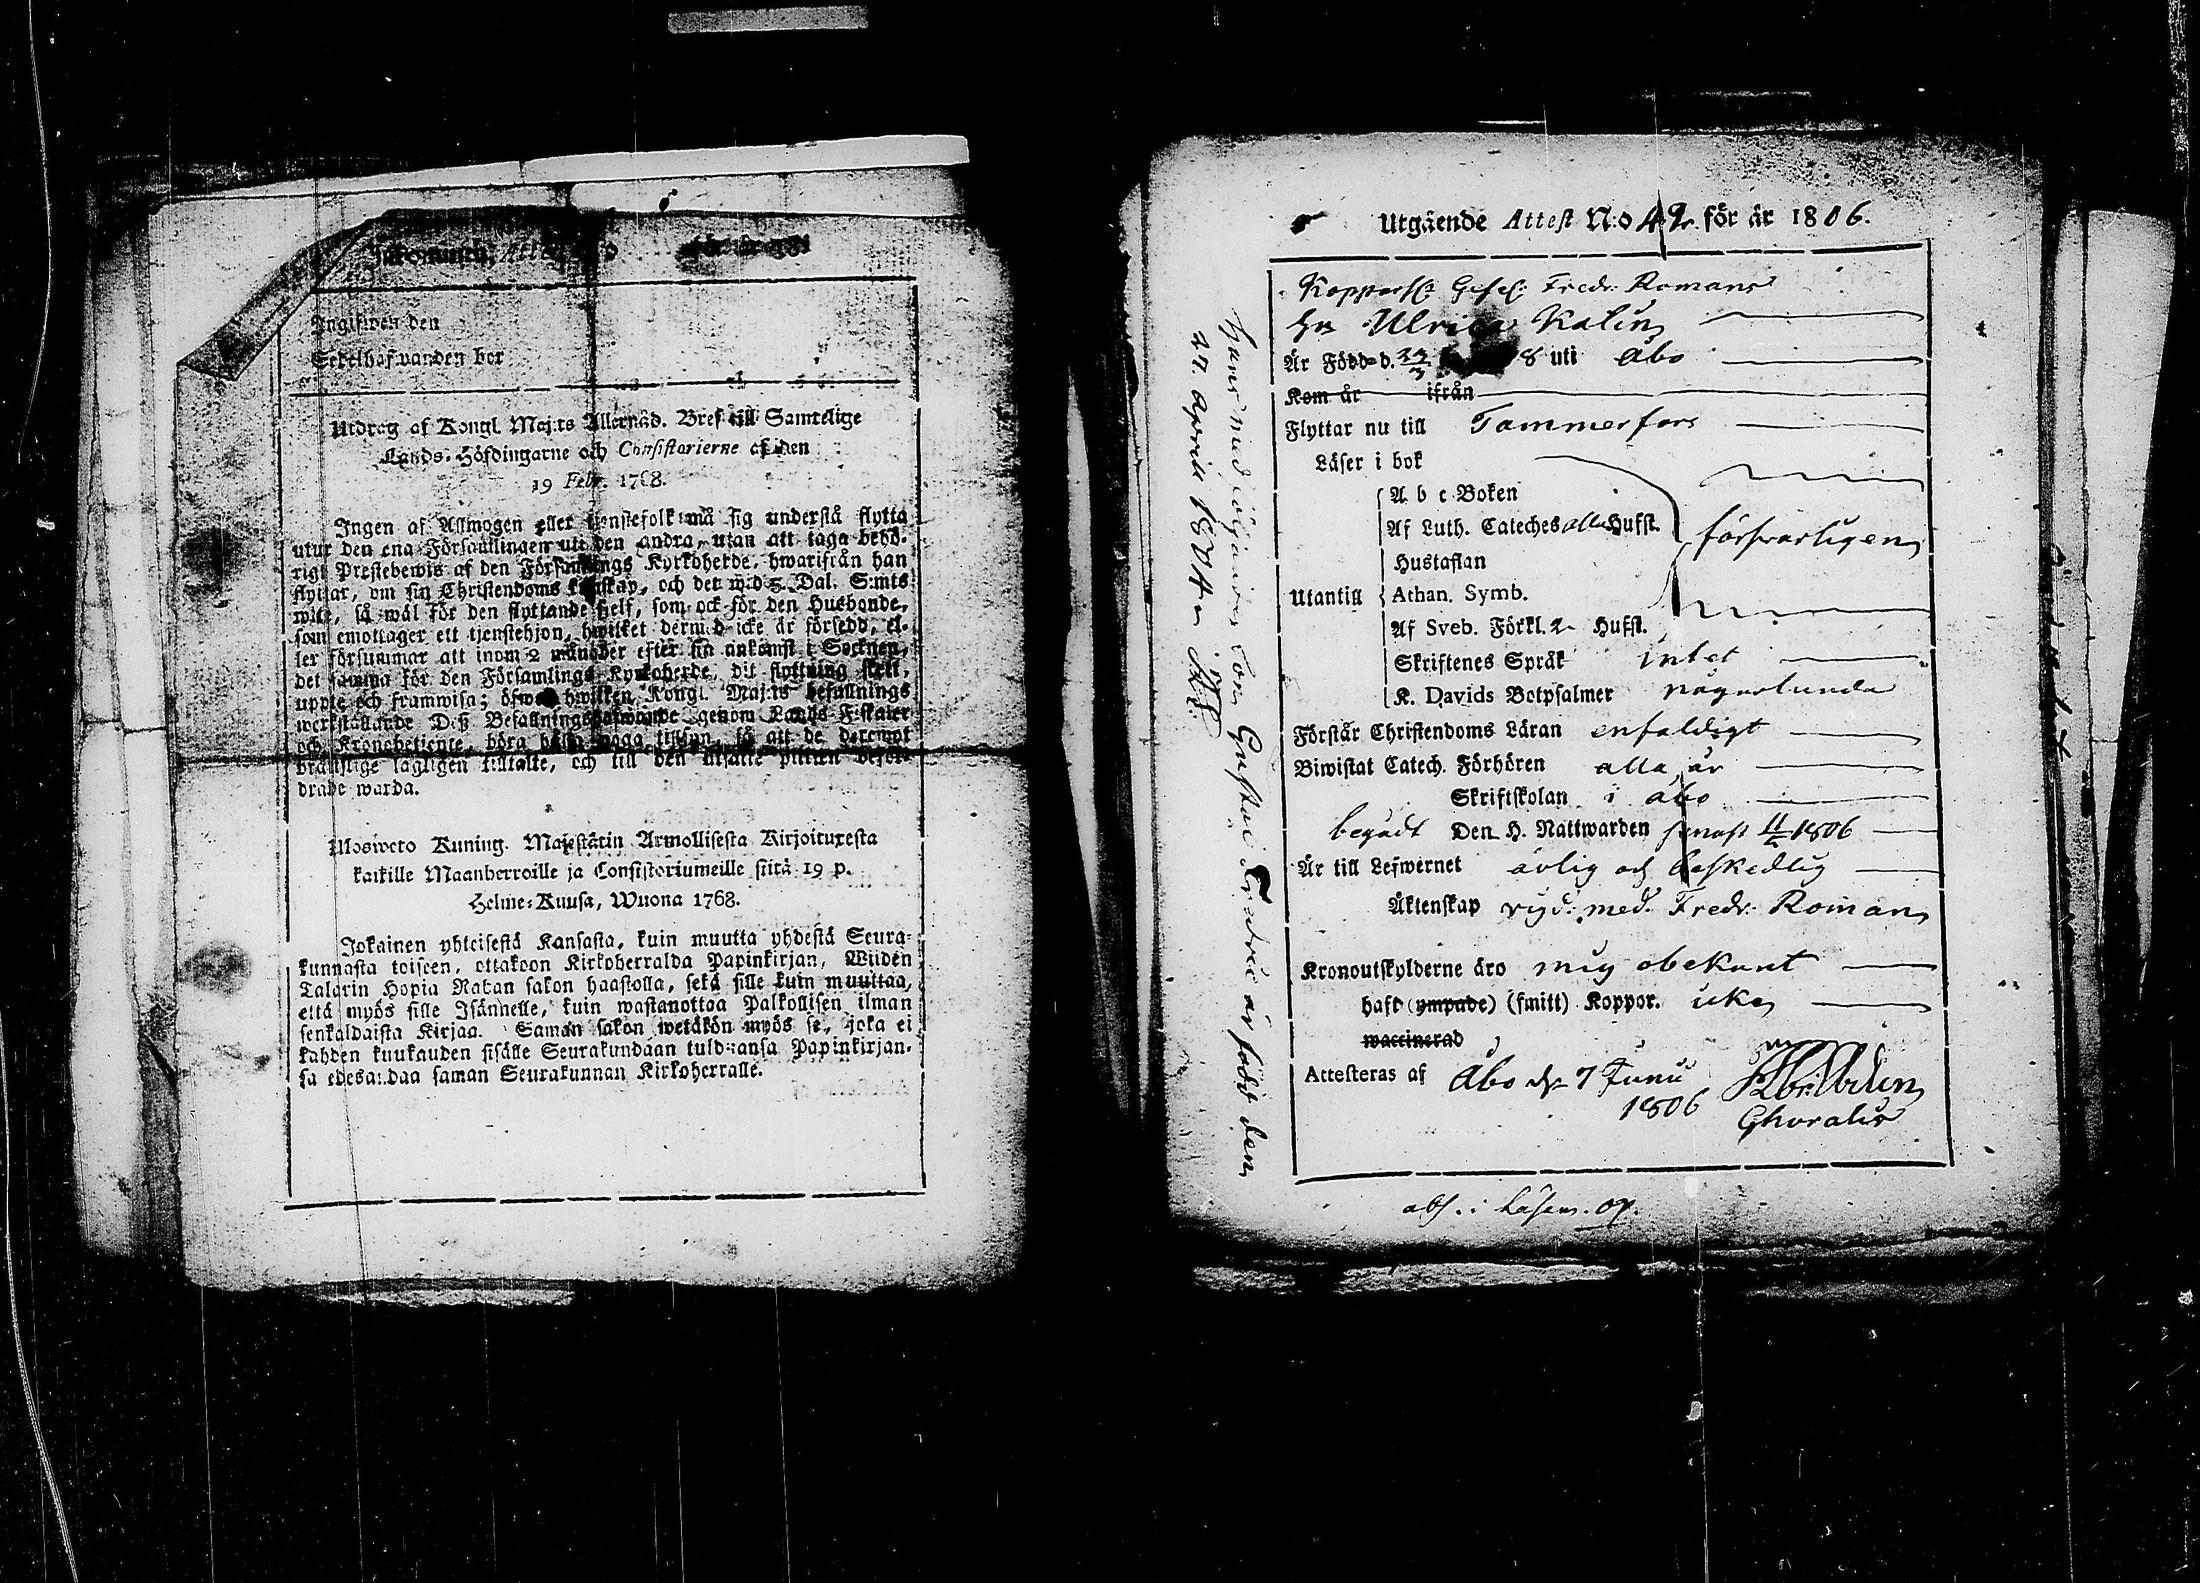 Ingifwen den
Sedelhafwanden bor
Utdrag af Kongl. Maj:ts Allernåd. Bref till Samtelige
Lands-Höfdingarne och Consistorierne af den
19 Febr. 1768.
Ingen af Allmogen eller tjenstefolk må sig understå flytta
utur den ena Församlingen uti den andra, utan att taga behö-
rigt Prestebewis af den Församlings Kyrkoherde, hwarifrån han
flyttar, om sin Christendoms kunskap, och det wid 5 Dal. S:mts
wite, så wäl för den flyttande sjelf, som ock för den Husbonde,
som emottager ett tjenstehjon, hwilket dermed icke är försedd, el-
ler försummar att inom 2 månader efter sin ankomst i Socknen,
det samma för den Församlings Kyrkoherde, dit flyttning skett,
uppte och framwisa; öfwer hwilken Kongl. Maj:ts befallnings
werkställande Deß Befallningshafwande genom Lands-Fiskaler
och Kronobetjente, böra hafwa noga tillsyn, så att de deremot
brottslige lagligen tilltalte, och till den utsatte plikten beford-
rade warda.
Ulosweto Kuning. Majestätin Armollisesta Kirjoituxesta
kaikille Maanherroille ja Consistoriumeille siitä 19 p.
Helme-Kuusa, Wuona 1768.
Jokainen yhteisestä Kansasta, kuin muutta yhdestä Seura-
kunnasta toiseen, ottakoon Kirkoherralda Papinkirjan, Wiiden
Talarin Hopia Rahan sakon haastolla, sekä sille kuin muuttaa,
että myös sille Isännelle, kuin wastanottaa Palkollisen ilman
senkaldaista Kirjaa. Saman sakon wetäkön myös se, joka ei
kahden kuukauden sisälle Seurakundaan tulduansa Papinkirjan-
sa edesandaa saman Seurakunnan Kirkoherralle.
Utgående Attest N:o 42 för år 1806.
Kopparsl: Gesel: Fredr: Romans
Hu Ulrica Kalin
Är Född d. 23/3 8 uti Åbo
Kom år ifrån
Flyttar nu till Tammerfors
Läser i bok
A b c Boken
Af Luth. Cateches alla Hufst. försvarligen
Hustaflan
Utantill Athan. Symb.
Af Sveb. Förkl. 2 Hufst.
Skriftenes Språk intet
K. Davids Botpsalmer någorlunda
Förstår Christendoms Läran enfaldigt
Biwistat Catech. Förhören alla år
Skriftskolan i Åbo
begådt Den H. Nattwarden senast 1806
Är till Lefwernet ärlig och beskedlig
Äktenskap vigd med Fredr: Roman
Kronoutskylderne äro mig obekant
haft (ympade) (smitt) Koppor. icke
waccinerad
Attesteras af Åbo d. 7 Junii
1806
hans medföljande Son Gustaf Fredric är född den
27 April 1804